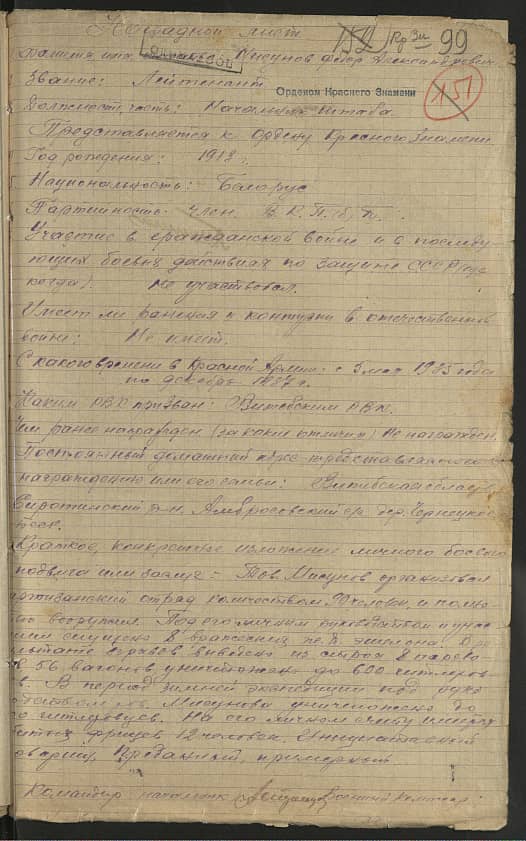 Наградной лист
152
99
Фамилия, имя, отчество Мисунов Фёдор Александрович
Орденом Красного Знамени
151
Звание: Лейтенант
Должность, часть: Начальник штаба
Представляется к ордену Красного Знамени
Год рождения: 1913 г.
Национальность: Белорус
Партийность: член В.К.П.(б).
Участие в гражданской войне и в последу-
ющих боевых действиях по защите СССР (где
когда). не участвовал.
Имеет ли ранения и контузии в отечественной
войне: Не имеет.
С какого времени в Красной Армии: с 5 мая 1935 года
по декабрь 1937 г.
Каким РВК призван: Витебским РВК.
Чем ранее награжден (за какие отличия) Не награжден.
Постоянный домашний адрес представляемого к
награждению или его семьи: Витебская область
Сиротинский р-н. Амбросовский с/с дер.
Краткое, конкретное изложение личного боевого
подвига или заслуг - Тов. Мисунов организовал
партизанский отряд количеством человек, и полно-
вооружил. Под его личным руководством и
спущено 8 вражеских ж.д. эшелона. В
взрывов выведено из строя 8 парово-
56 вагонов уничтожено до 600 гитлеров
В период зимней экспедиции под руко
водством тов. Мисунова уничтожено до
гитлеровцев. На его личном счету имеется
убитых фрицев 12 человек. Инициативный
товарищ. Преданный, примерный
Командир Военный Комиссар: